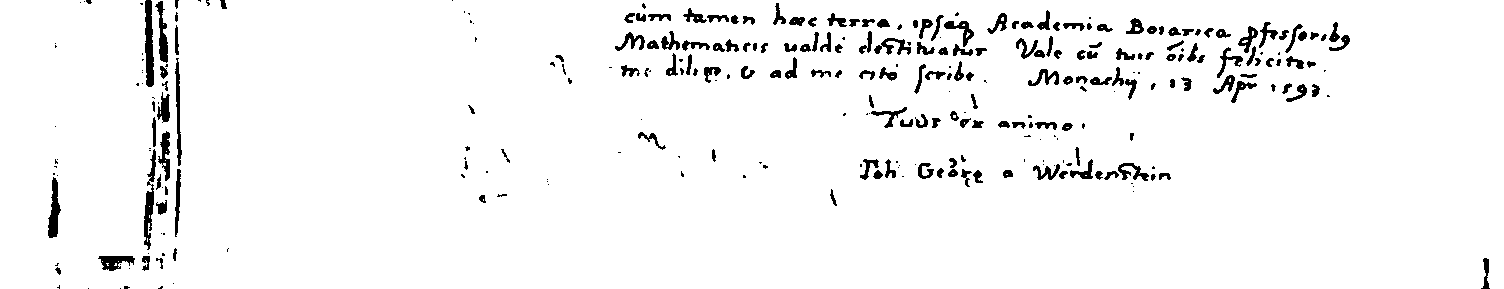 cùm tamen hæc terra, ipsáq̃ Academia Boiarica ꝓfessoribꝯ
Mathematicis ualdè destituatur Vale cū tuis õibs fęliciter
me dilige, & ad me citò scribe. Monachij, 13 Apr̃ 1593.
Tuus ex animo.
Joh. Georg a Werdenstein